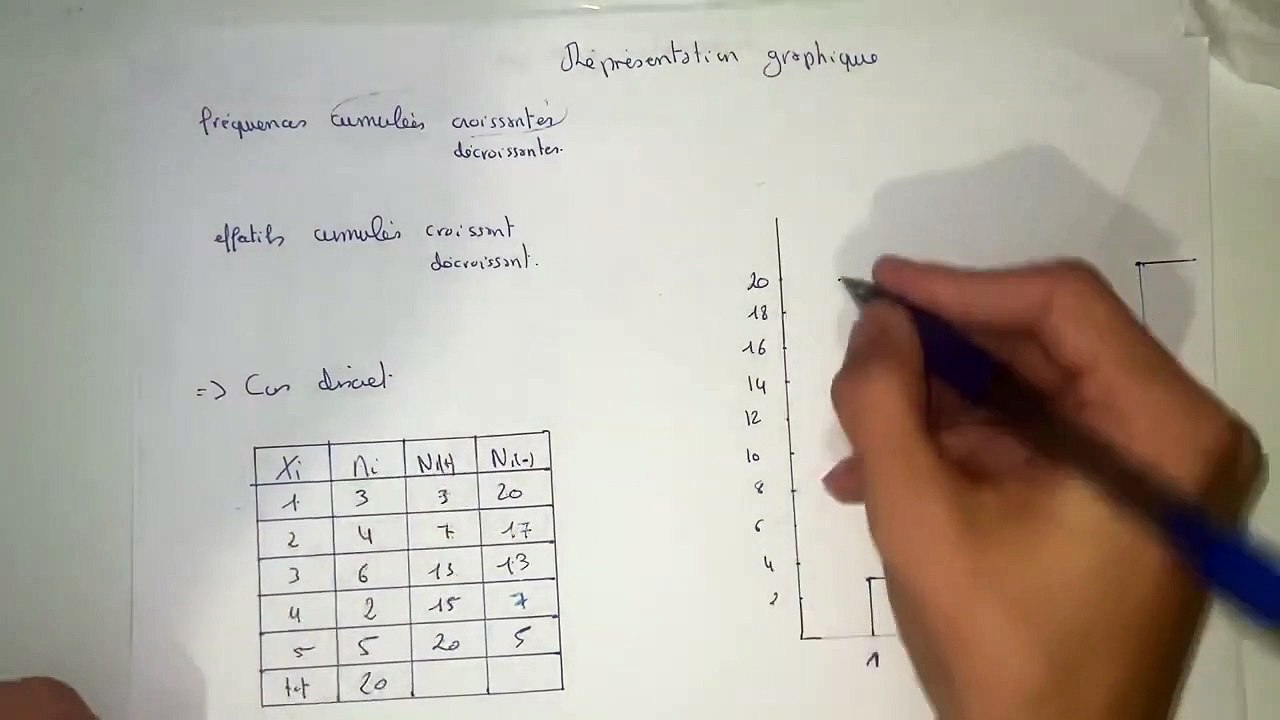 Réprésentation graphique
fréquences cumulées croissantes
décroissantes.
effectifs cumulés croissant
décroissant.
=> Cas discret.
Xi ni Ni(+) Ni(-)
1 3 3 20
2 4 7 17
3 6 13 13
4 2 15 7
5 5 20 5
tot 20
20
18
16
14
12
10
8
6
4
2
1